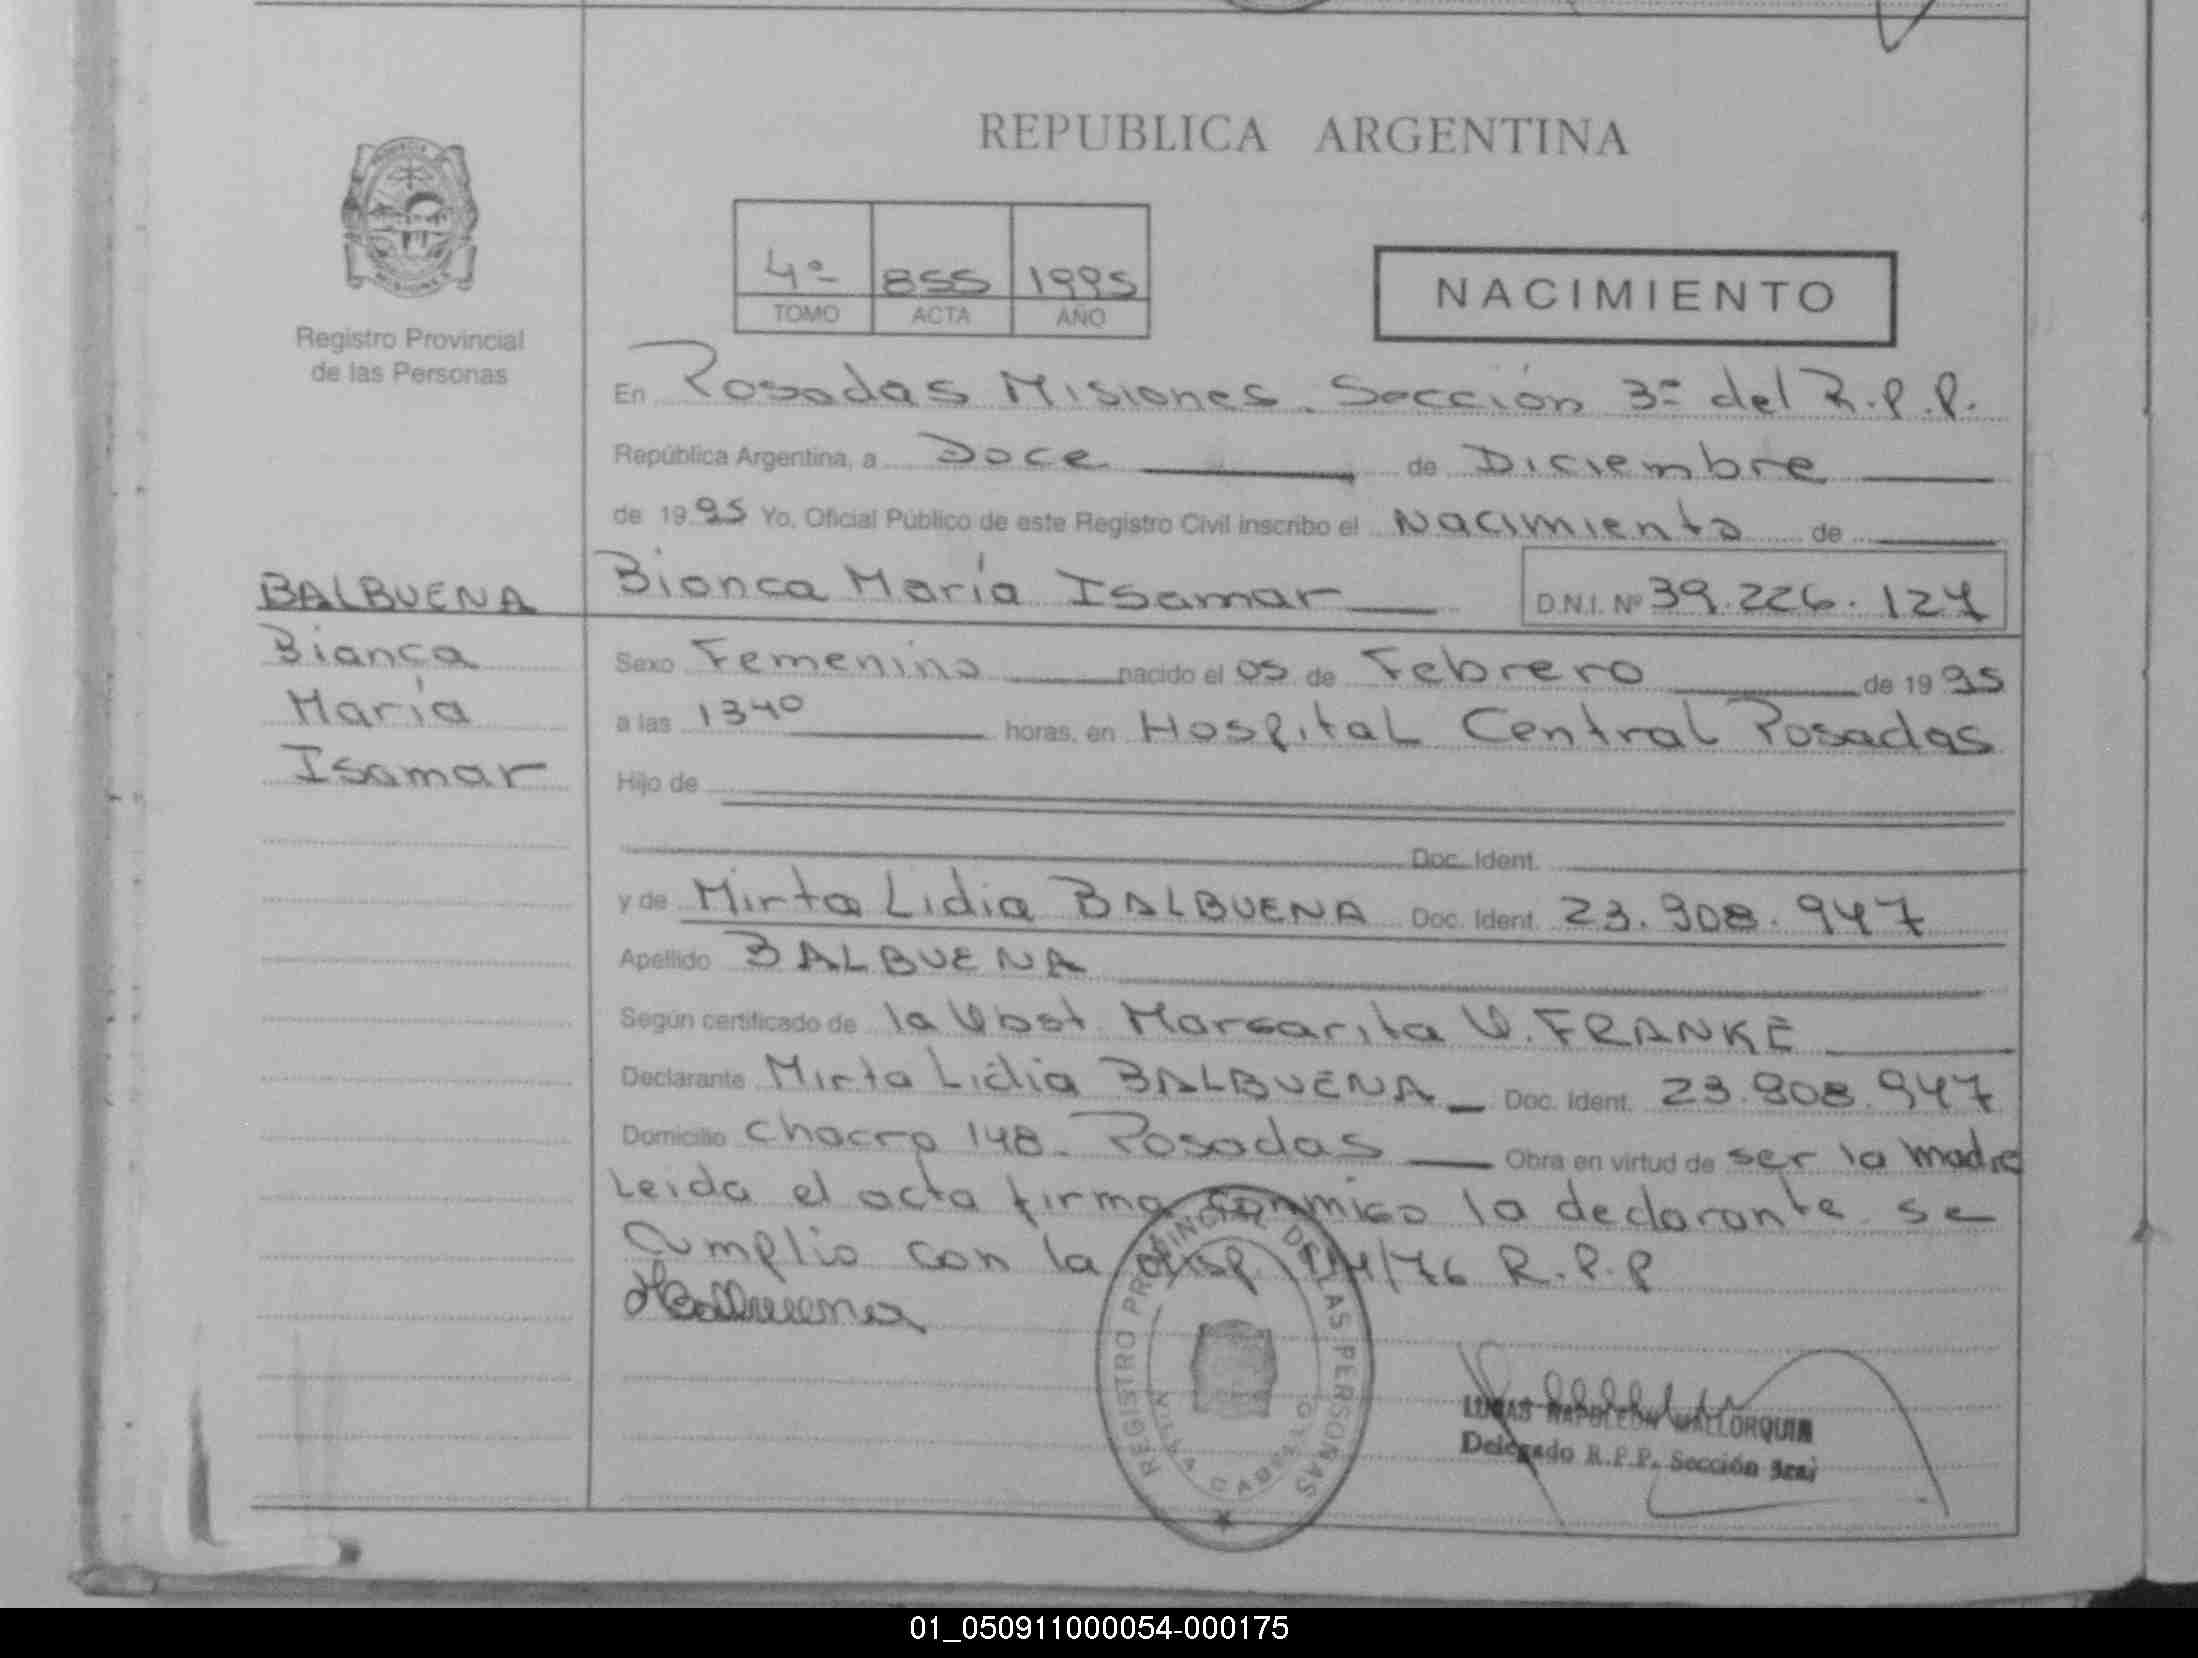 REPUBLICA ARGENTINA
4º 855 1995
TOMO ACTA AÑO
NACIMIENTO
Registro Provincial
de las Personas
En Posadas Misiones. Sección 3ª del R.P.P.
República Argentina, a Doce de Diciembre
de 1995 Yo, Oficial Público de este Registro Civil inscribo el Nacimiento de
BALBUENA
Bianca María Isamar D.N.I. Nº 39.226.127
Bianca
María
Isamar
Sexo Femenino nacido el 05 de Febrero de 1995
a las 1340 horas, en Hospital Central Posadas
Hijo de
Doc. Ident.
y de Mirta Lidia BALBUENA Doc. Ident. 23.908.947
Apellido BALBUENA
Según certificado de la Obst. Margarita O. FRANKE
Declarante Mirta Lidia BALBUENA Doc. Ident. 23.908.947
Domicilio Chacra 148. Posadas Obra en virtud de ser la madre
Leida el acta firma conmigo la declarante se
Cumplio con la Disp. /76 R.P.P
MBalbuena
REGISTRO PROVINCIAL DE LAS PERSONAS
LUCAS NAPOLEON MALLORQUIN
Delegado R.P.P. Sección 3ra
01_050911000054-000175